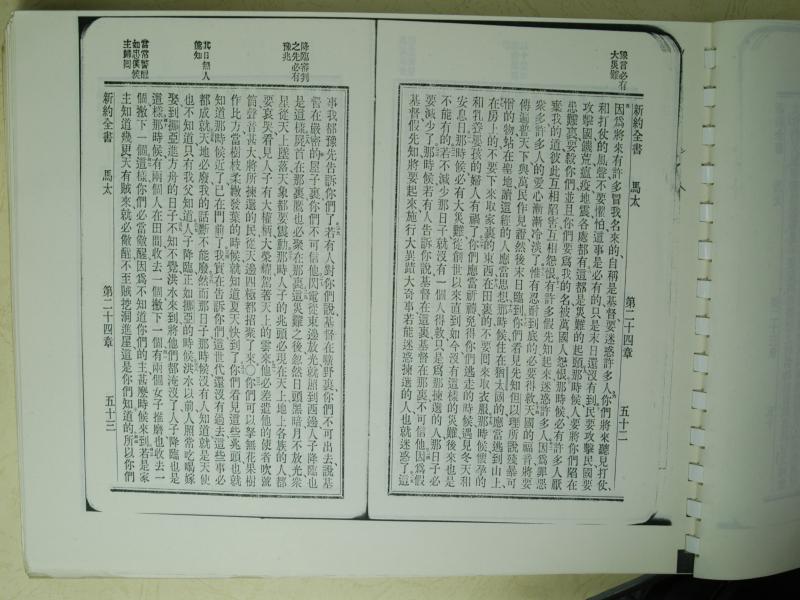 豫言必有
大災難
新約全書 馬太 第二十四章 五十二
因爲將來有許多冒我名來的、自稱是基督、要迷惑許多人、你們將來聽見打仗、
和打仗的風聲、不要懼怕、這事是必有的、只是末日還沒有到、民要攻擊民、國要
攻擊國、饑荒瘟疫地震各處都有、這都是災難的起頭、那時候人要將你們陷在
患難裏、要殺你們、並且你們要爲我的名、被萬國人怨恨、那時候必有許多人厭
棄我的道、彼此互相陷害、互相怨恨、有許多假先知起來、迷惑許多人、因爲罪惡
衆多、許多人的愛心漸漸冷淡了、惟有忍耐到底的、必要得救、天國的福音、將要
傳遍普天下、與萬民作見證、然後末日臨到、你們看見先知但以理所說、殘暴可
憎的物、站在聖地、讀這經的人應當思想、那時候住在猶太國的、應當逃到山上、
在房上的、不要下來取家裏的東西、在田裏的、不要回來取衣服、那時候懷孕的
和乳養嬰孩的婦人有禍了、你們應當祈禱、免得你們逃走的時候、遇見冬天和
安息日、那時候必有大災難、從創世以來直到如今、沒有這樣的災難、後來也是
不能有的、若不減少那日子、就沒有一個人得救、只是爲那揀選的人、那日子必
要減少了、那時候若有人告訴你說、基督在這裏、基督在那裏、不可信他、因爲假
基督假先知將要起來、施行大異蹟大奇事、若能迷惑揀選的人、也就迷惑了、這
降臨審判
之先必有
豫兆
其日無人
能知
當常警醒
如忠僕候
主歸同
事我都豫先告訴你們了、若有人對你們說、基督在曠野裏、你們不可出去、說基
督在嚴密的屋子裏、你們不可信他、閃電從東邊放光、就照到西邊、人子降臨也
是這樣、屍首在那裏、鷹也必聚在那裏、這災難之後、忽然日頭黑暗、月不放光、衆
星從天上墜落、天象都要震動、那時人子的兆頭必現在天上、地上各族的人都
要哀哭、看見人子有大權柄、大榮耀、駕著天上的雲來、他必差遣他的使者、吹號
筒聲音甚大、將所揀選的民、從天邊四極都招聚了來○你們可以拏無花果樹
作比方、當樹枝柔嫩發葉的時候、就知道夏天快到了、你們看見這些兆頭、也就
知道那時候近了、已在門前了、我實在告訴你們、這世代還沒有過去、這些事必
都成就、天地必廢、我的話斷不能廢、然而那日子那時候、沒有人知道、就是天使
也不知道、只有我父知道、人子降臨、正如挪亞的時候、洪水以前人照常吃喝嫁
娶、到挪亞進方舟的日子、不知不覺洪水來到、將他們都淹沒了、人子降臨也是
這樣、那時候有兩個人在田間、收去一個、撇下一個、有兩個女子推磨、也收去一
個、撇下一個、這樣、你們必當儆醒、因爲不知道你們的主甚麼時候來到、若是家
主知道幾更天有賊來、就必儆醒、不至賊挖洞進屋、這是你們知道的、所以你們
新約全書 馬太 第二十四章 五十三